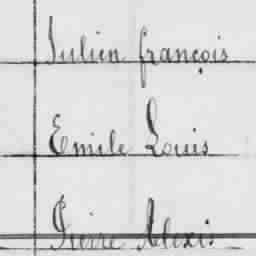 Julien françois
Emile Louis
Pierre Alexis